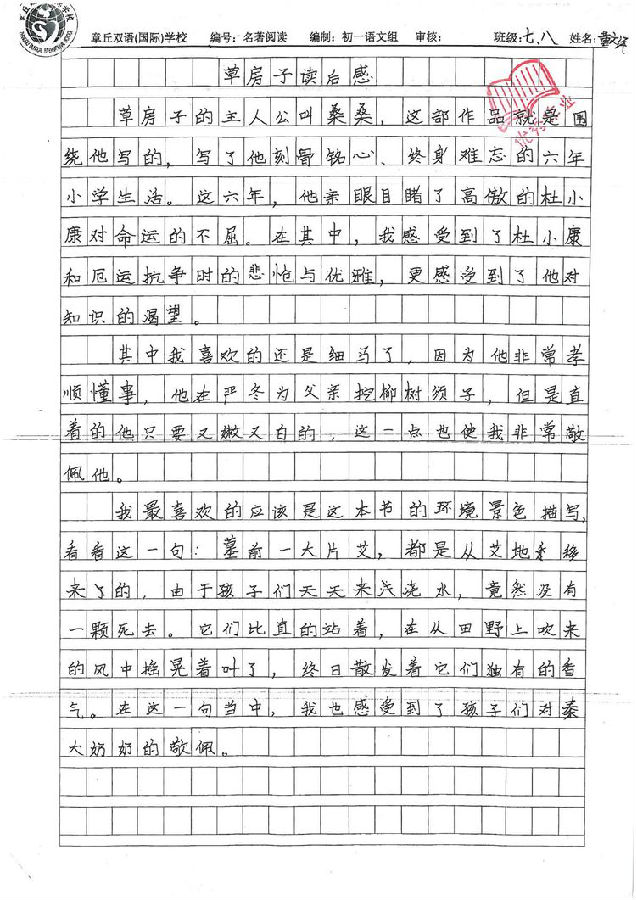 章丘双语(国际)学校 编号:名著阅读 编制:初一语文组 审核: 班级:七、八 姓名:
草房子读后感
草房子的主人公叫桑桑，这部作品就是围
绕他写的，写了他刻骨铭心、终身难忘的六年
小学生活。这六年，他亲眼目睹了高傲的杜小
康对命运的不屈。在其中，我感受到了杜小康
和厄运抗争时的悲怆与优雅，更感受到了他对
知识的渴望。
其中我喜欢的还是细马了，因为他非常孝
顺懂事，他在严冬为父亲挖柳树须子，但是直
着的他只要又嫩又白的，这一点也使我非常敬
佩他。
我最喜欢的应该是这本书的环境景色描写，
看看这一句：墓前一大片艾，都是从艾地
来了的，由于孩子们天天来浇水，竟然没有
一颗死去。它们比直的站着，在从田野上吹来
的风中摇晃着叶了，终日散发着它们独有的香
气。在这一句当中，我也感受到了孩子们对秦
大奶奶的敬佩。